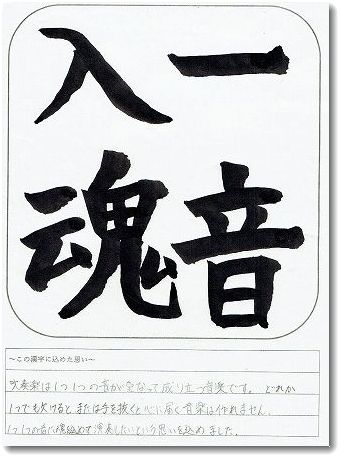 一音
入魂
~この漢字に込めた思い~
吹奏楽は1つ1つの音が重なって成り立つ音楽です。どれか
1つでも欠けると、または手を抜くと心に届く音楽は作れません。
1つ1つの音に魂込めて演奏したいという思いを込めました。